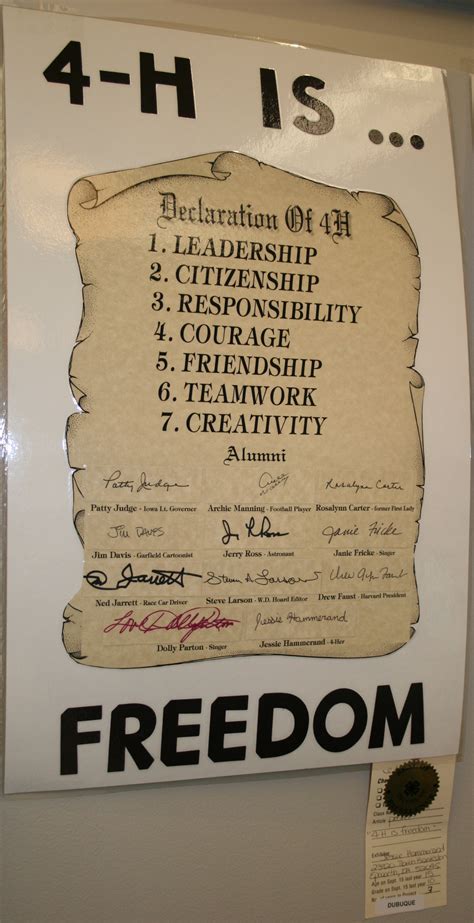 4-H IS ...
Declaration Of 4H
1. LEADERSHIP
2. CITIZENSHIP
3. RESPONSIBILITY
4. COURAGE
5. FRIENDSHIP
6. TEAMWORK
7. CREATIVITY
Alumni
Patty Judge Rosalynn Carter
Patty Judge - Iowa Lt. Governor Archie Manning - Football Player Rosalynn Carter - former First Lady
JIM DAVIS Janie Fricke
Jim Davis - Garfield Cartoonist Jerry Ross - Astronaut Janie Fricke - Singer
Jarrett Steve Larson Drew Gilpin Faust
Ned Jarrett - Race Car Driver Steve Larson - W.D. Hoard Editor Drew Faust - Harvard President
Love Dolly Parton Jessie Hammerand
Dolly Parton - Singer Jessie Hammerand - 4-Her
FREEDOM
Article
"4-H is freedom"
Exhibitor
Jessie Hammerand
Age on Sept. 15 last year
Grade on Sept. 15 last year
DUBUQUE